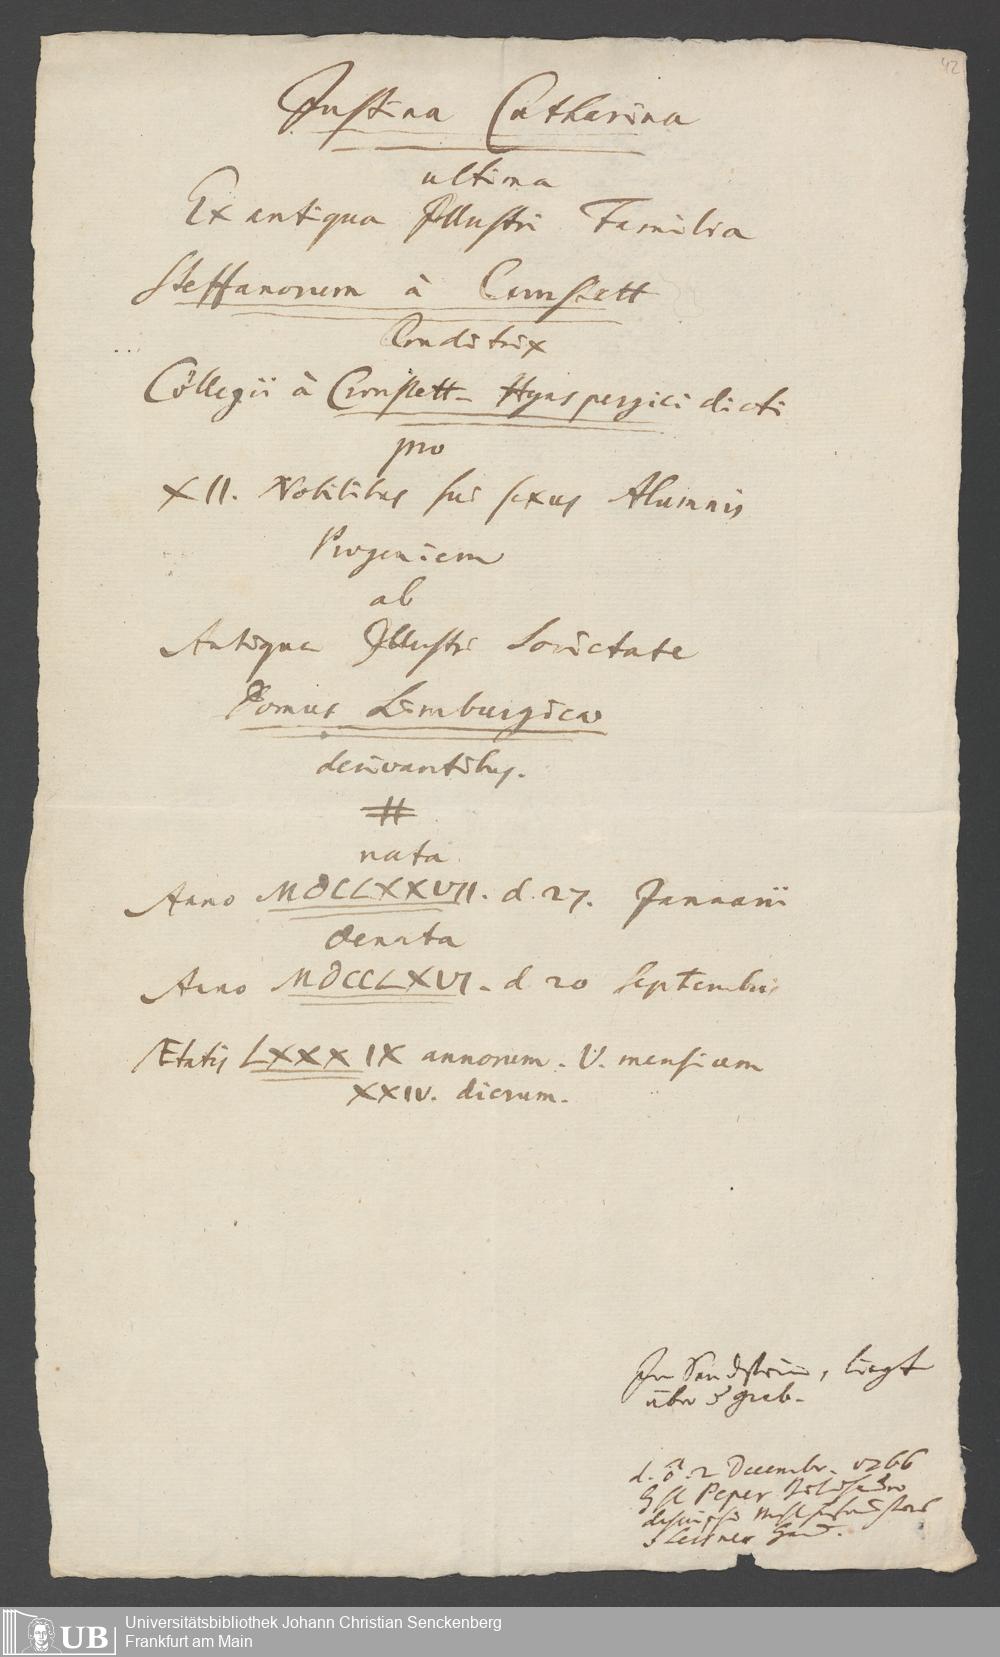 42
Justina Catharina
ultima
Ex antiqua Illustri Familia
Steffanorum à Cronstett
Conditrix
Collegii à Cronstett- Hynspergici dicti
pro
XII. Nobilibus sui sexus Alumnis
Progeniem
ab
Antiqua Illustri Societate
Domus Limburgica
derivantibus.
nata
Anno MDCLXXVII. d. 27. Januarii
denata
Anno MDCCLXVI. d 20 Septembris
Ætatis LXXXIX annorum. V. mensium
XXIV. dierum.
Im Sandstein, liegt
über grab.
d. 2 Decembr. 1766
UB
Universitätsbibliothek Johann Christian Senckenberg
Frankfurt am Main